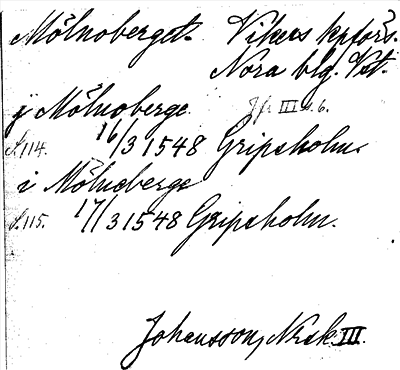 Mölnoberget. Vikers kpförs.
Nora blg. Vst.
j Mölnoberge Jfr III s. 6.
s. 114. 16/3 1548 Gripsholm.
i Mölnoberge
s. 115. 17/3 1548 Gripsholm.
Johansson, Nrsk. III.